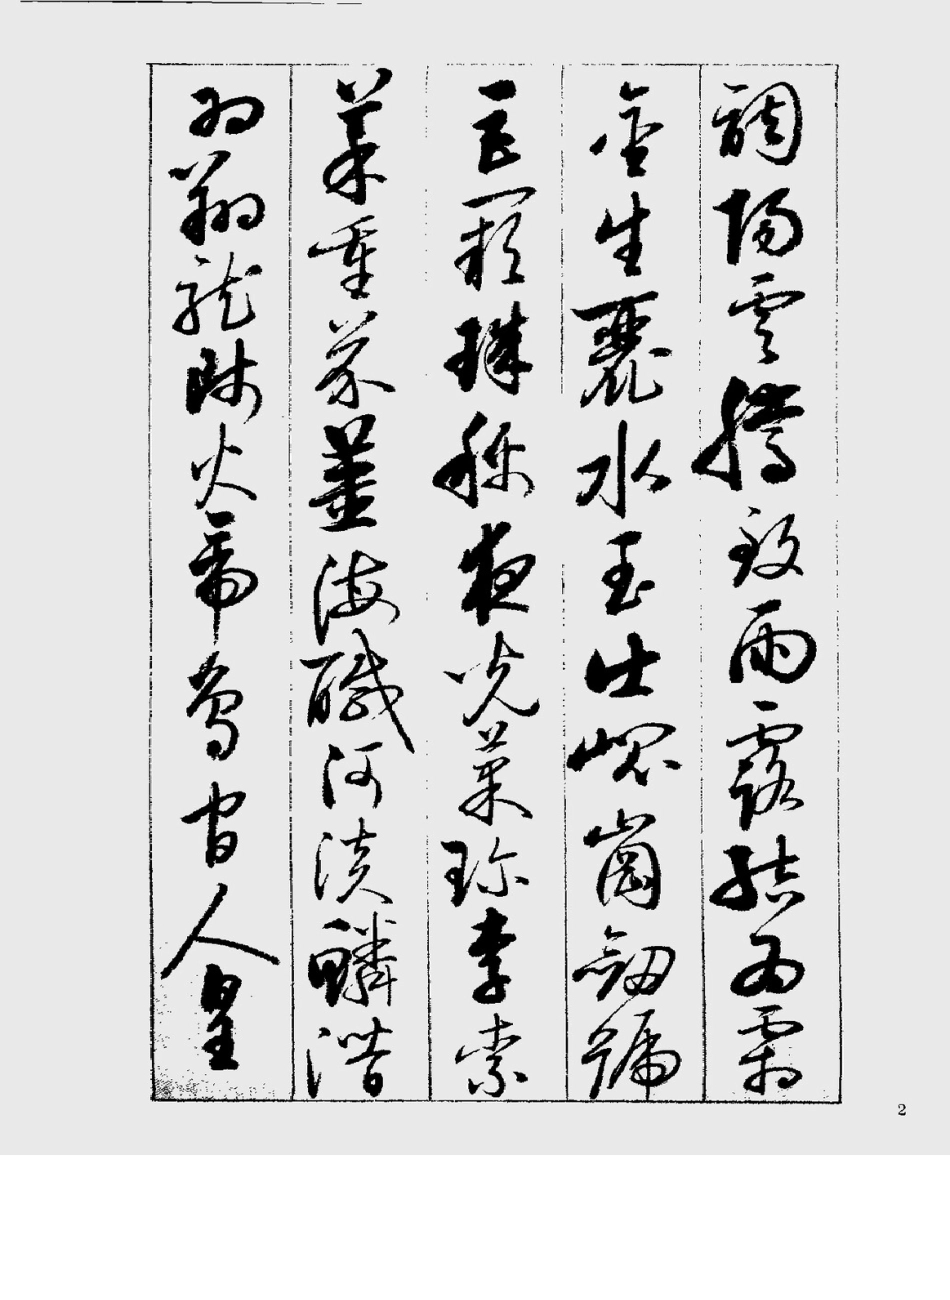 調陽雲騰致雨露結為霜
金生麗水玉出崐崗劒號
巨闕珠稱夜光菓珍李柰
菜重芥薑海醎河淡鱗潛
羽翔龍師火帝鳥官人皇
2